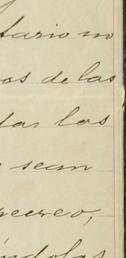 tario no
os de las
das las
e sean
pecreo,
éndolas